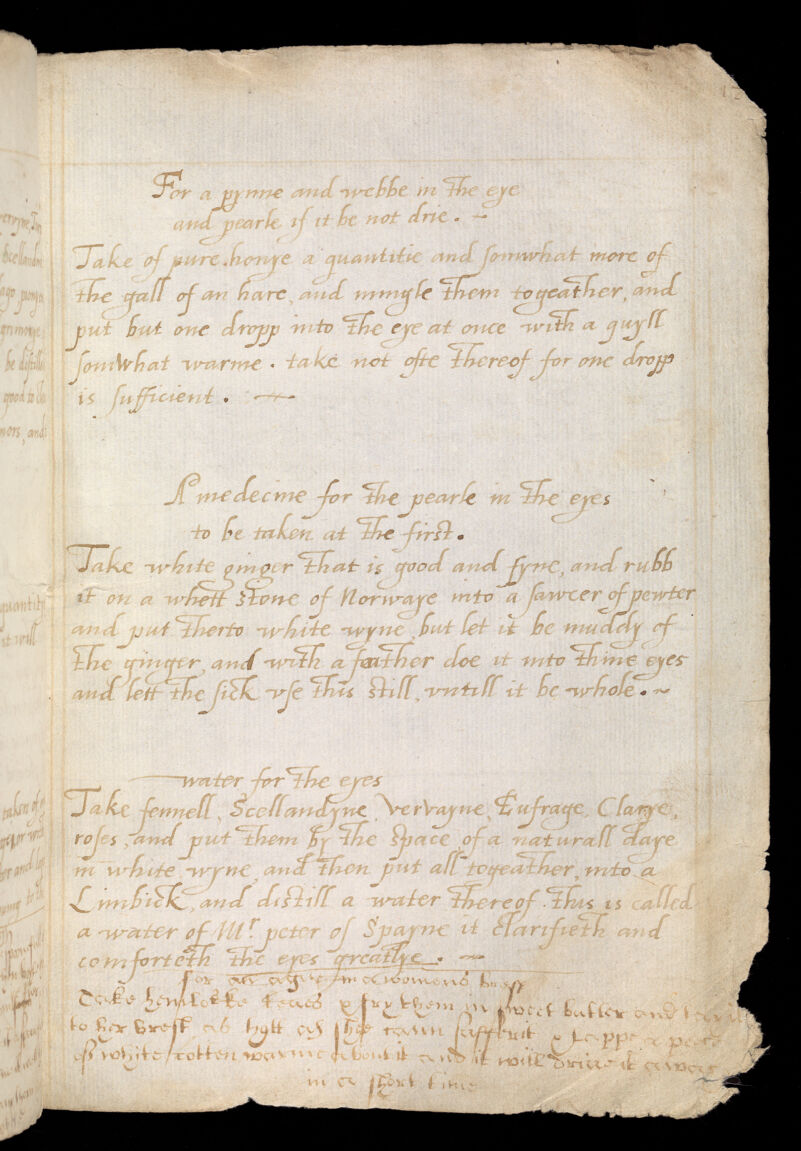 For a pynne and webbe in the eye
and pearle if it be not drie.
Take of pure honye a quantitie and somwhat more of
the gall of an hare, and mingle them togeather, and
put but one dropp into the eye at once with a quyll
somwhat warme. take not ofte thereof for one dropp
is sufficient.
A medecine for the pearle in the eyes
to be taken at the first.
Take white ginger that is good and fyne, and rubb
it on a whett stone of Norwaye into a sawcer of pewter
and put therto white wyne, but let it be muddy of
the ginger, and with a feather doe it into thine eyes
and lett the sick vse this still, vntill it be whole.
water for the eyes
Take fennell, Scellandyne, Vervayne, Eufrage, Clarye,
roses, and put them by the space of a naturall daye
in white wyne, and then put all togeather into a
Limbick, and distill a water thereof. this is called
a water of Mr. peter of Spayne it clarifieth and
comforteth the eyes greatlye.
for an ague in a womons brest
Take hemlokke leaes & fry them in sweet butter and
to her brest as hott as shee cann suffer it & lappe a peece
of white cotten warme about it and it will drive it away
in a short time
verveyne,
Scellandine
be distilled
good to
and
quantity
it will
taken of